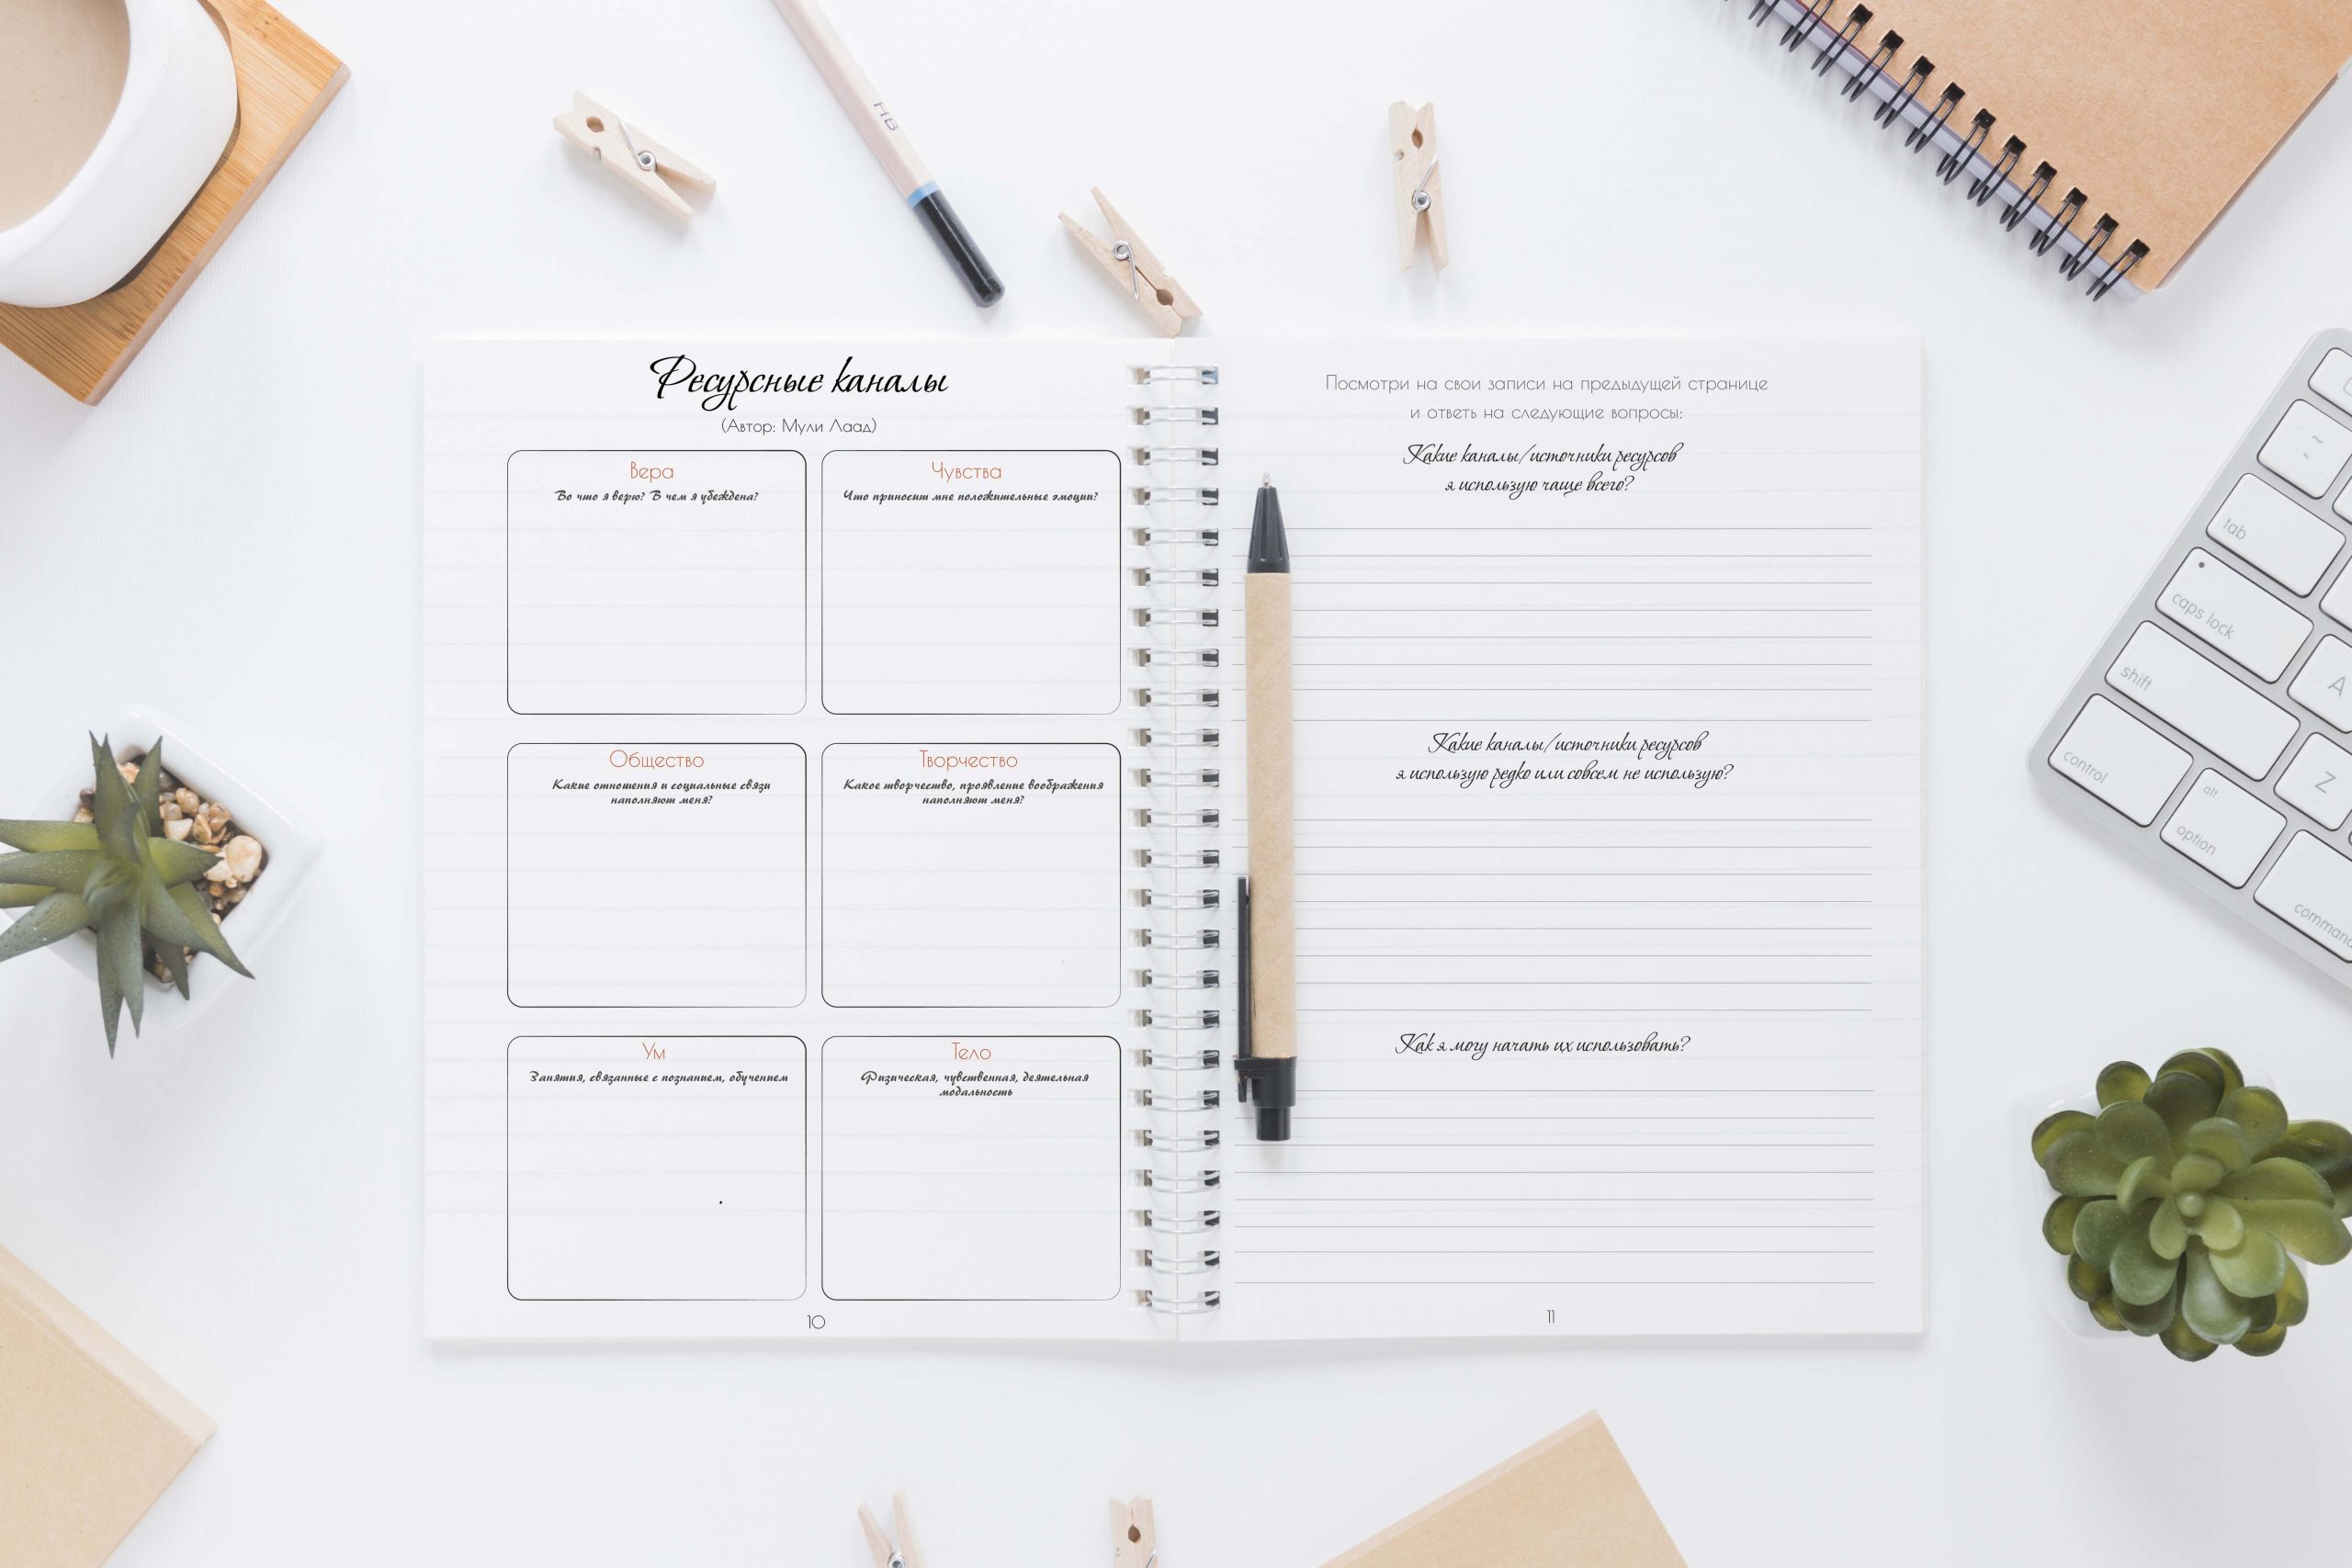 HB
Ресурсные каналы
(Автор: Мули Лаад)
Вера
Во что я верю? В чем я убеждена?
Чувства
Что приносит мне положительные эмоции?
Общество
Какие отношения и социальные связи
наполняют меня?
Творчество
Какое творчество, проявление воображения
наполняют меня?
Ум
Занятия, связанные с познанием, обучением
Тело
Физическая, чувственная, деятельная
модальность
10
Посмотри на свои записи на предыдущей странице
и ответь на следующие вопросы:
Какие каналы/источники ресурсов
я использую чаще всего?
Какие каналы/источники ресурсов
я использую редко или совсем не использую?
Как я могу начать их использовать?
11
~
tab
caps lock
A
shift
Z
control
alt
option
command